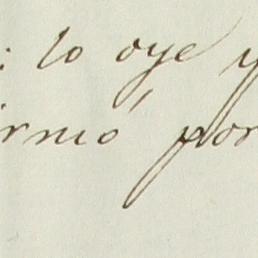 : lo oye y
irmó por